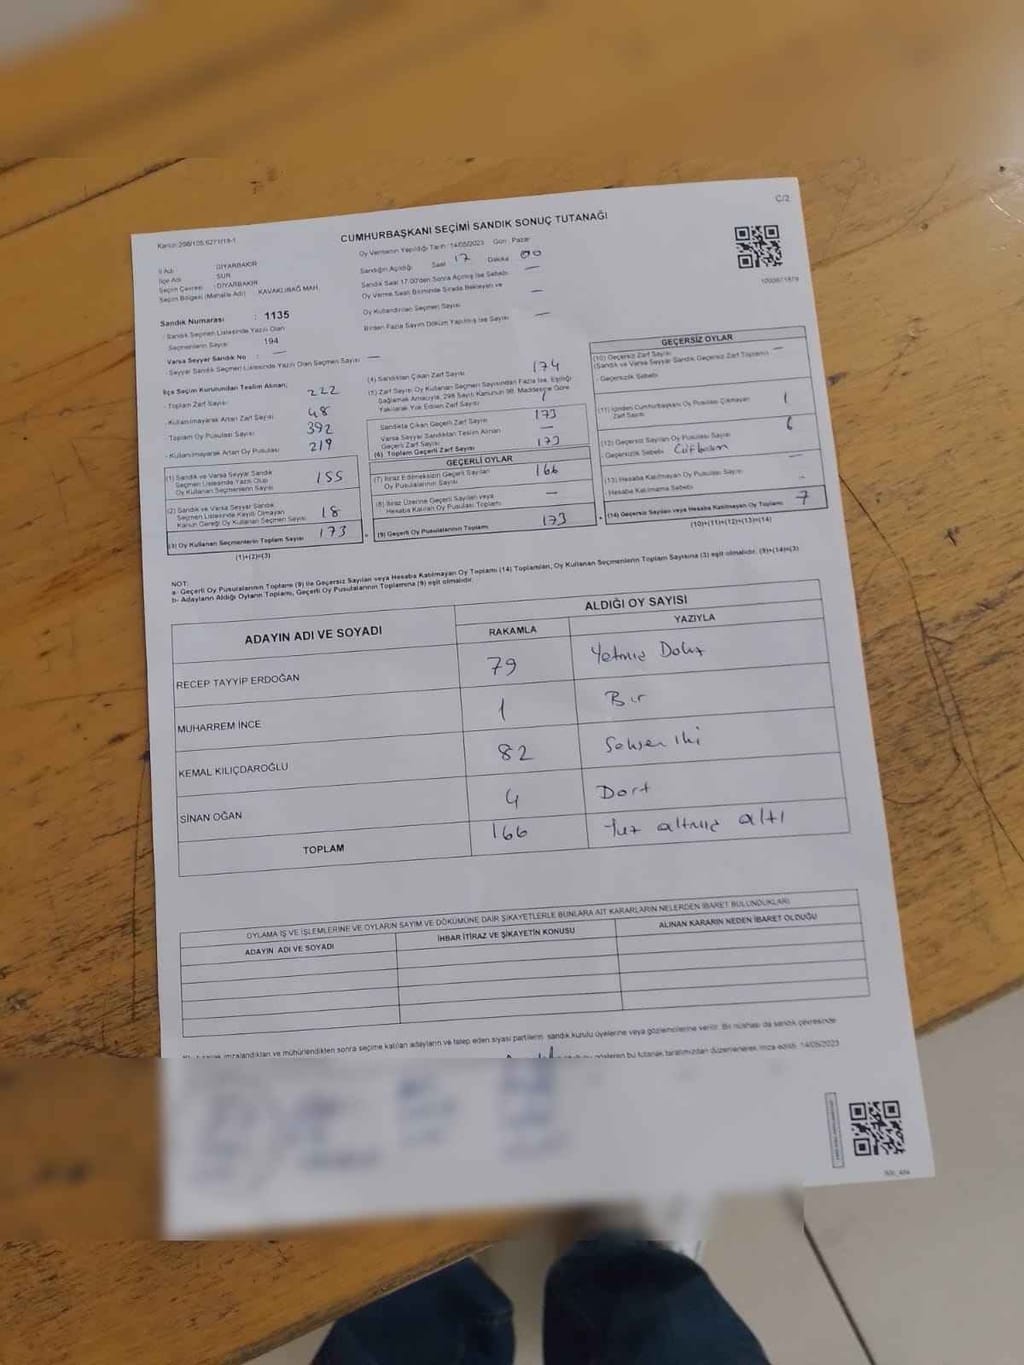 C/2
Kanun:298/105,6271/19-1
CUMHURBAŞKANI SEÇİMİ SANDIK SONUÇ TUTANAĞI
Oy Vermenin Yapıldığı Tarih :14/05/2023 Gün : Pazar
İl Adı : DİYARBAKIR
İlçe Adı : SUR
Seçim Çevresi : DİYARBAKIR
Seçim Bölgesi (Mahalle Adı) : KAVAKLIBAĞ MAH.
Sandığın Açıldığı Saat 17 Dakika 00
Sandık Saat 17.00'den Sonra Açılmış İse Sebebi —
Oy Verme Saati Bitiminde Sırada Bekleyen ve
Oy Kullandırılan Seçmen Sayısı —
Birden Fazla Sayım Döküm Yapılmış İse Sayısı —
Sandık Numarası : 1135
Sandık Seçmen Listesinde Yazılı Olan
Seçmenlerin Sayısı 194
Varsa Seyyar Sandık No : —
Seyyar Sandık Seçmen Listesinde Yazılı Olan Seçmen Sayısı —
İlçe Seçim Kurulundan Teslim Alınan;
- Toplam Zarf Sayısı 222
- Kullanılmayarak Artan Zarf Sayısı 48
- Toplam Oy Pusulası Sayısı 392
- Kullanılmayarak Artan Oy Pusulası 219
(1) Sandık ve Varsa Seyyar Sandık
Seçmen Listesinde Yazılı Olup
Oy Kullanan Seçmenlerin Sayısı 155
(2) Sandık ve Varsa Seyyar Sandık
Seçmen Listesinde Kayıtlı Olmayan
Kanun Gereği Oy Kullanan Seçmenlerin Sayısı 18
(3) Oy Kullanan Seçmenlerin Toplam Sayısı 173
(1)+(2)=(3)
(4) Sandıktan Çıkan Zarf Sayısı 174
(5) Zarf Sayısı Oy Kullanan Seçmen Sayısından Fazla İse, Eşitliği
Sağlamak Amacıyla, 298 Sayılı Kanunun 98. Maddesine Göre
Yakılarak Yok Edilen Zarf Sayısı 1
Sandıkta Çıkan Geçerli Zarf Sayısı 173
Varsa Seyyar Sandıktan Teslim Alınan
Geçerli Zarf Sayısı —
(6) Toplam Geçerli Zarf Sayısı 173
GEÇERLİ OYLAR
(7) İtiraz Edilmeksizin Geçerli Sayılan
Oy Pusulalarının Sayısı 166
(8) İtiraz Üzerine Geçerli Sayılan veya
Hesaba Katılan Oy Pusulası Toplamı —
(9) Geçerli Oy Pusulalarının Toplamı 173
1000671879
GEÇERSİZ OYLAR
(10) Geçersiz Zarf Sayısı —
(Sandık ve Varsa Seyyar Sandık Geçersiz Zarf Toplamı)
- Geçersizlik Sebebi
(11) İçinden Cumhurbaşkanı Oy Pusulası Çıkmayan
Zarf Sayısı 1
(12) Geçersiz Sayılan Oy Pusulası Sayısı 6
- Geçersizlik Sebebi
(13) Hesaba Katılmayan Oy Pusulası Sayısı —
Hesaba Katılmama Sebebi -
(14) Geçersiz Sayılan veya Hesaba Katılmayan Oy Toplamı 7
(10)+(11)+(12)+(13)=(14)
NOT:
a- Geçerli Oy Pusulalarının Toplamı (9) ile Geçersiz Sayılan veya Hesaba Katılmayan Oy Toplamı (14) Toplamları, Oy Kullanan Seçmenlerin Toplam Sayısına (3) eşit olmalıdır. (9)+(14)=(3)
b- Adayların Aldığı Oyların Toplamı, Geçerli Oy Pusulalarının Toplamına (9) eşit olmalıdır.
ADAYIN ADI VE SOYADI
ALDIĞI OY SAYISI
RAKAMLA YAZIYLA
RECEP TAYYİP ERDOĞAN 79 Yetmiş Dokuz
MUHARREM İNCE 1 Bir
KEMAL KILIÇDAROĞLU 82 Seksen iki
SİNAN OĞAN 4 Dört
TOPLAM 166 Yüz altmış altı
OYLAMA İŞ VE İŞLEMLERİNE VE OYLARIN SAYIM VE DÖKÜMÜNE DAİR ŞİKAYETLERLE BUNLARA AİT KARARLARIN NELERDEN İBARET BULUNDUKLARI
ADAYIN ADI VE SOYADI İHBAR İTİRAZ VE ŞİKAYETİN KONUSU ALINAN KARARIN NEDEN İBARET OLDUĞU
imzalandıktan ve mühürlendikten sonra seçime katılan adayların ve talep eden siyasi partilerin sandık kurulu üyelerine veya gözlemcilerine verilir. Bir nüshası da sandık çevresinde
gösteren bu tutanak tarafımızdan düzenlenerek imza edildi. 14/05/2023